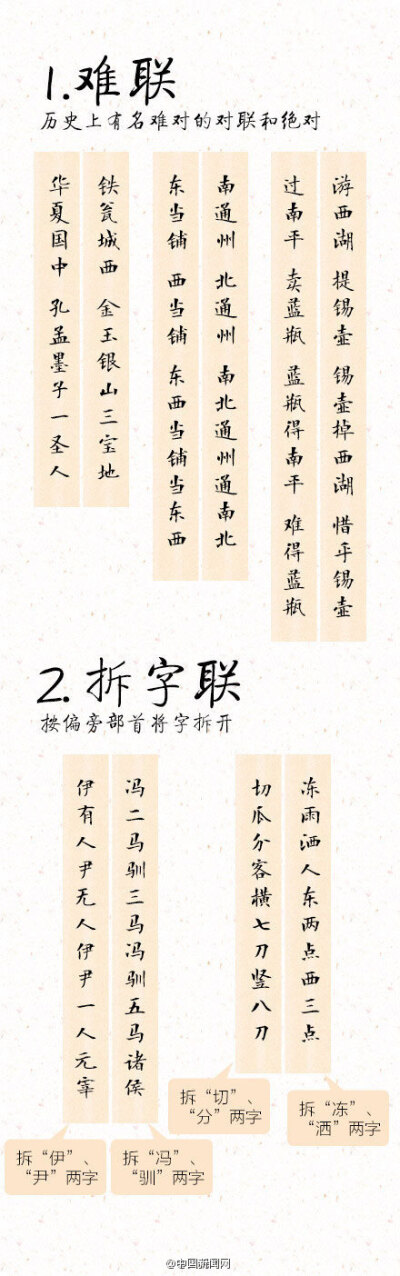 1.难联
历史上有名难对的对联和绝对
游西湖 提锡壶 锡壶掉西湖 惜乎锡壶
过南平 卖蓝瓶 蓝瓶得南平 难得蓝瓶
南通州 北通州 南北通州通南北
东当铺 西当铺 东西当铺当东西
铁瓮城西 金玉银山三宝地
华夏国中 孔孟墨子一圣人
2.拆字联
按偏旁部首将字拆开
冻雨洒人东两点西三点
切瓜分客横七刀竖八刀
拆“冻”、
“洒”两字
拆“切”、
“分”两字
冯二马驯三马冯驯五马诸侯
伊有人尹无人伊尹一人元宰
拆“冯”、
“驯”两字
拆“伊”、
“尹”两字
@中国新闻网